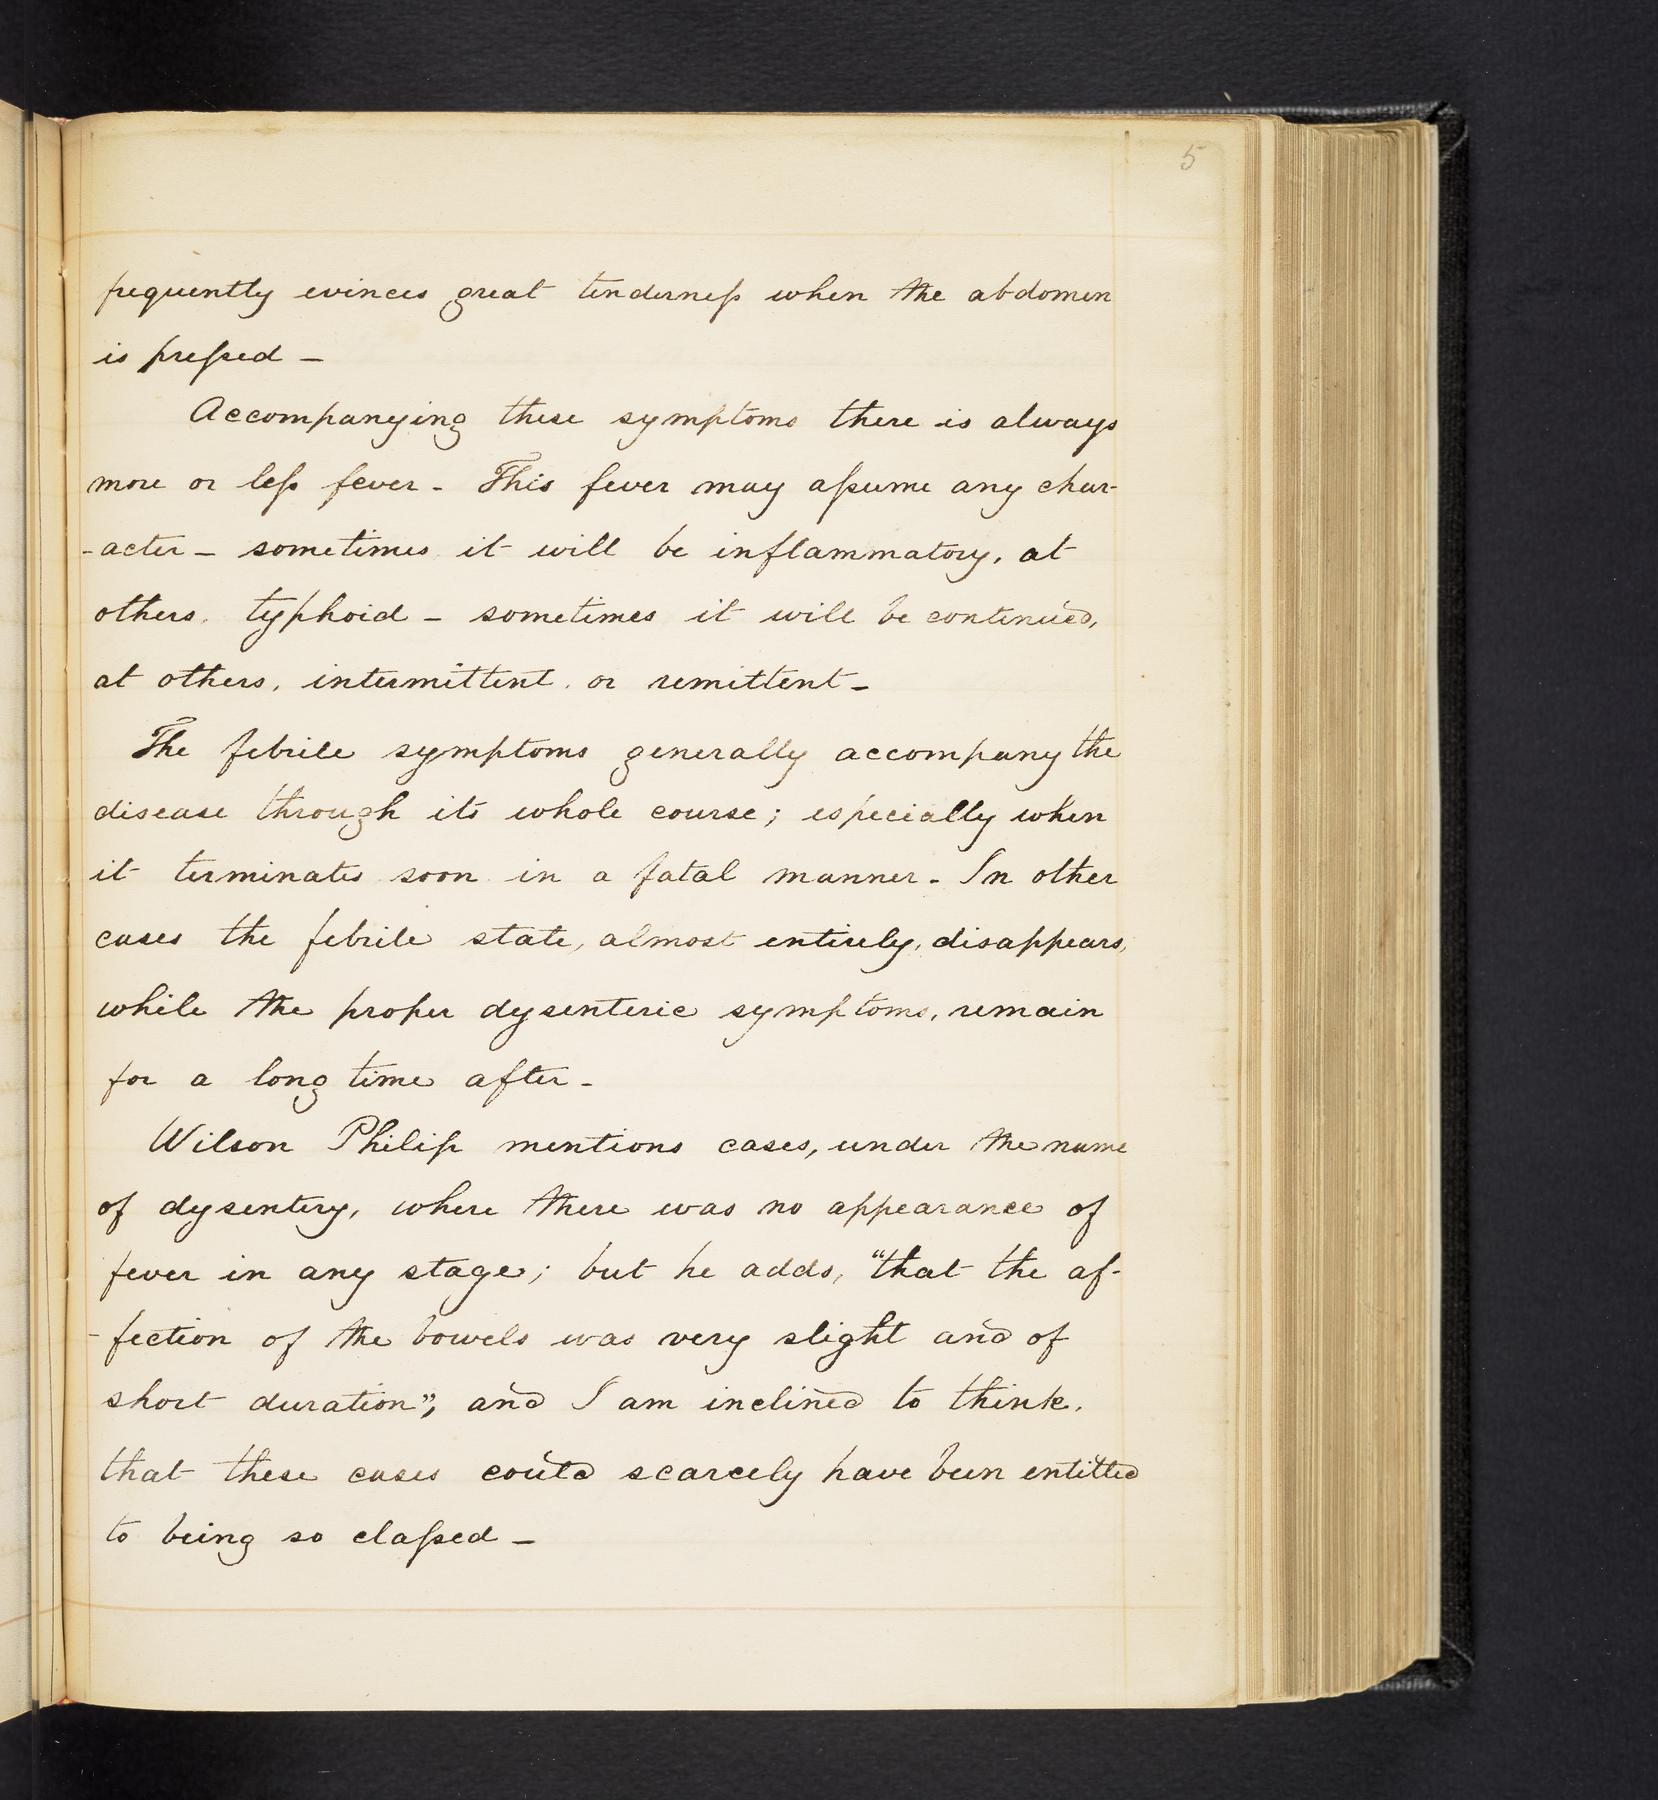 5
frequently evinces great tenderness when the abdomen
is pressed –
Accompanying these symptoms there is always
more or less fever – This fever may assume any char-
-acter – sometimes it will be inflammatory, at
others, typhoid – sometimes it will be continued,
at others, intermittent, or remittent –
The febrile symptoms generally accompany the
disease through its whole course; especially when
it terminates soon in a fatal manner – In other
cases the febrile state, almost entirely, disappears,
while the proper dysenteric symptoms, remain
for a long time after –
Wilson Philip mentions cases, under the name
of dysentery, where there was no appearance of
fever in any stage; but he adds, "that the af-
-fection of the bowels was very slight and of
short duration"; and I am inclined to think,
that these cases could scarcely have been entitled
to being so classed –